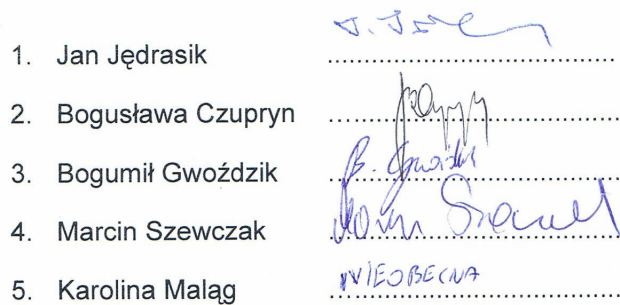 1. Jan Jędrasik ..............................
2. Bogusława Czupryn ..............................
3. Bogumił Gwoździk ..............................
B. Gwoździk
4. Marcin Szewczak ..............................
5. Karolina Maląg NIEOBECNA ..............................